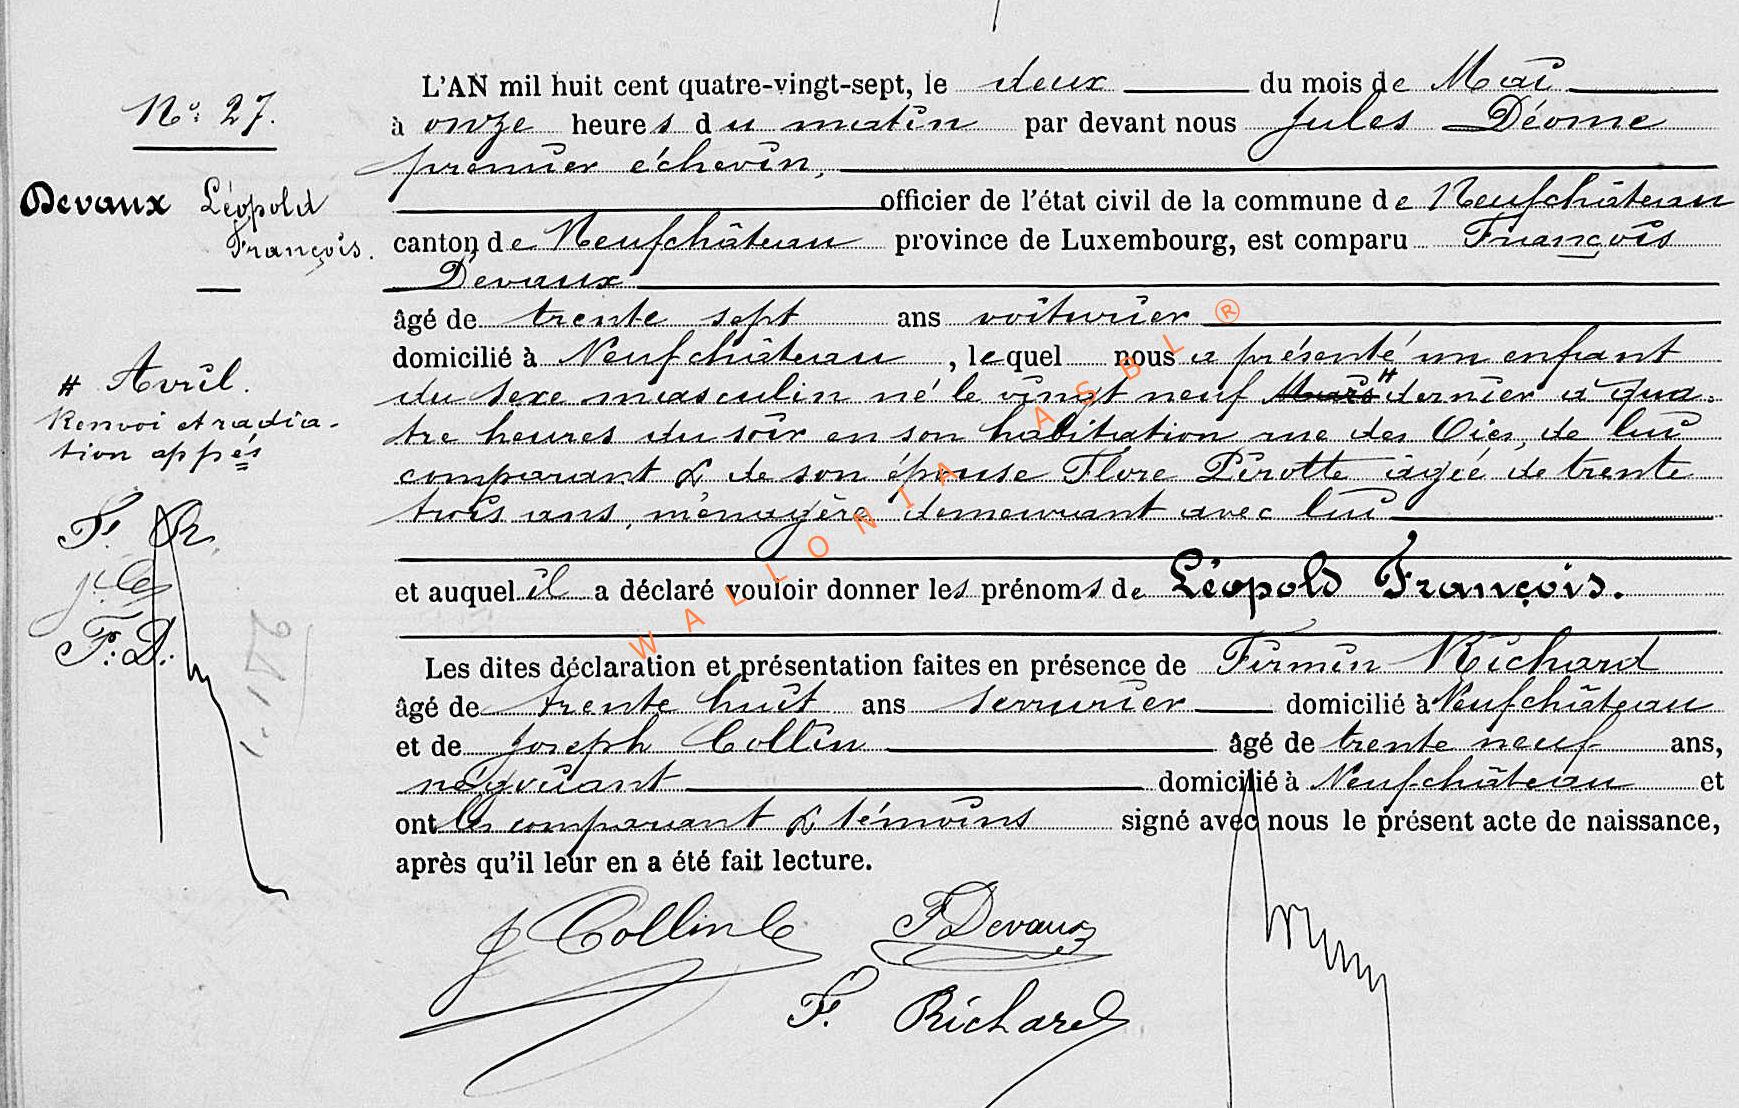 L'AN mil huit cent quatre-vingt-sept, le deux du mois de Mai
N° 27.
à onze heures du matin par devant nous Jules Déome
premier échevin,
Devaux Léopold
François.
officier de l'état civil de la commune de Neufchâteau
canton de Neufchâteau province de Luxembourg, est comparu François
Devaux
âgé de trente sept ans voiturier
domicilié à Neufchâteau, lequel nous a présenté un enfant
# Avril.
Renvoi et radia-
tion app.és
F. R.
F. D.
du sexe masculin né le vingt neuf Mars # dernier à qua-
tre heures du soir en son habitation rue des Oies, de lui
comparant & de son épouse Flore Pirotte âgée de trente
trois ans, ménagère demeurant avec lui
et auquel il a déclaré vouloir donner les prénoms de Léopold François.
Les dites déclaration et présentation faites en présence de Firmin Richard
âgé de trente huit ans serrurier domicilié à Neufchâteau
et de Joseph Collin âgé de trente neuf ans,
négociant domicilié à Neufchâteau et
ont les comparant & témoins signé avec nous le présent acte de naissance,
après qu'il leur en a été fait lecture.
J Collin F Devaux
F. Richard
WALLONIA ASBL ®